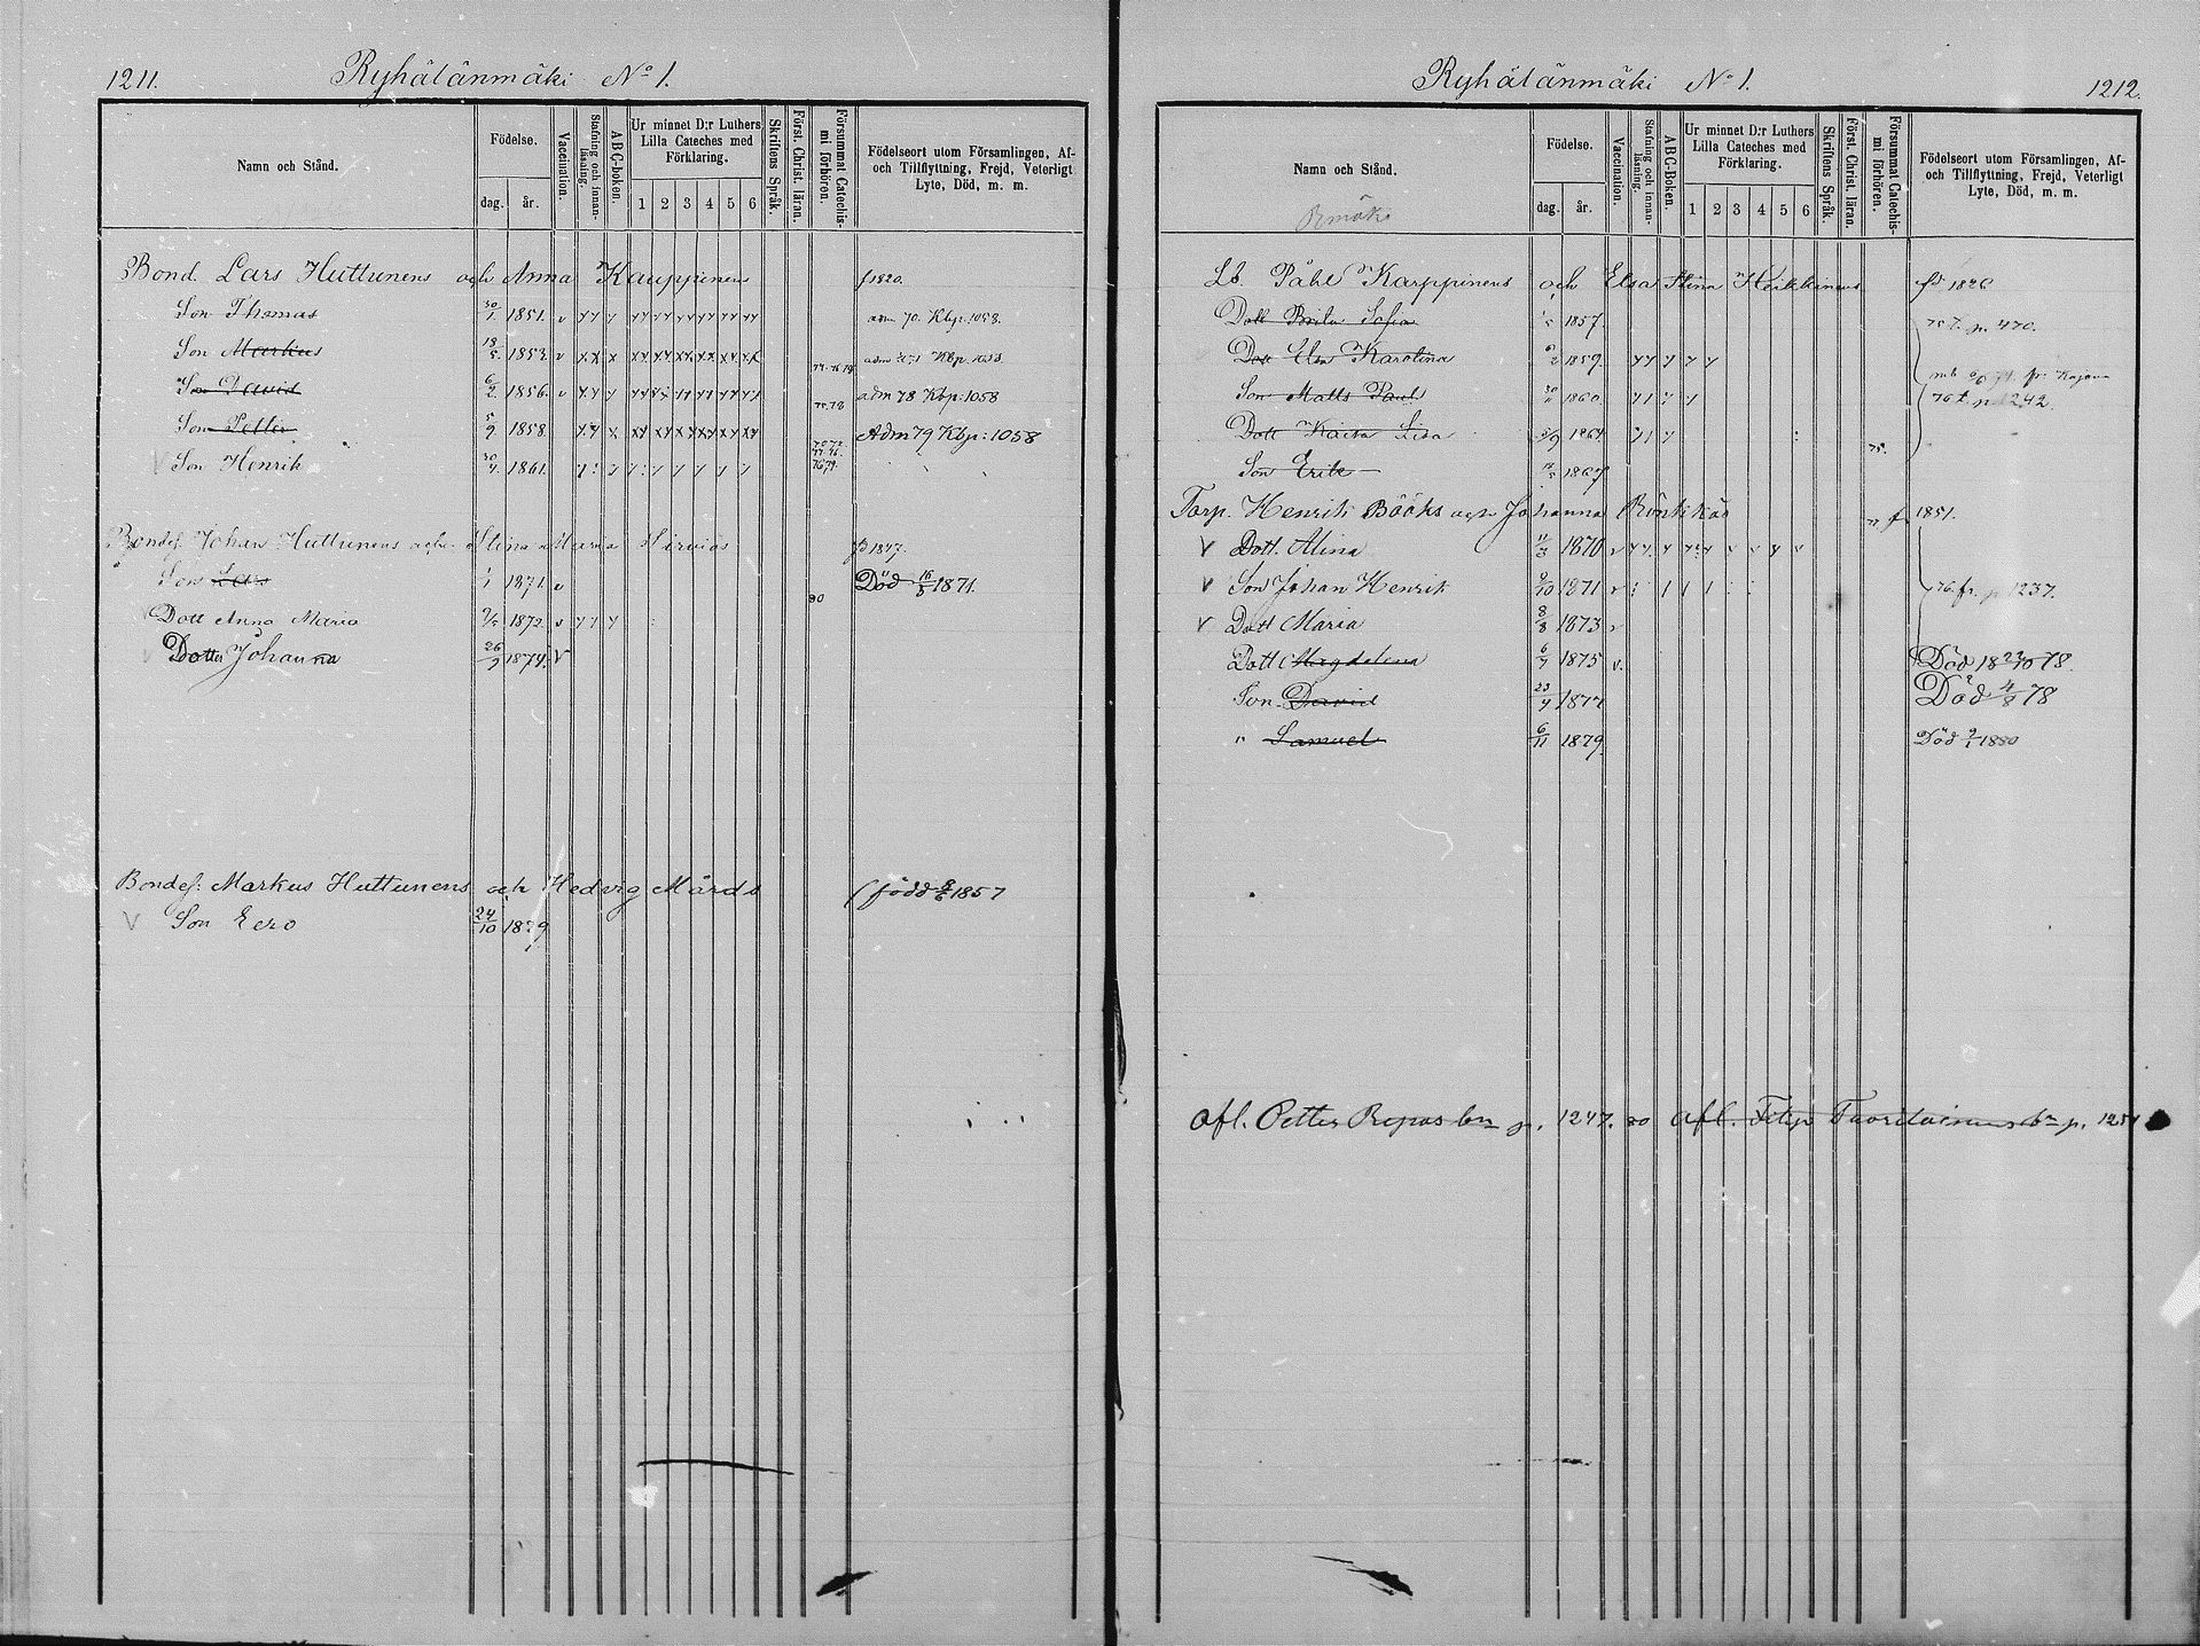 1211.
Ryhälänmäki No 1.
Namn och Stånd.
Födelse.
dag.
år.
Vaccination.
Stafning och innanläsning.
ABC-boken.
Ur minnet D:r Luthers Lilla Cateches med Förklaring.
1 2 3 4 5 6
Skriftens Språk.
Först. Christ. läran.
Försummat Catechismi förhören.
Födelseort utom Församlingen, Af- och Tillflyttning, Frejd, Veterligt Lyte, Död, m. m.
Bond. Lars Huttunens och Anna Kauppinens f 1820.
Son Thomas 30/1 1851. v adm 70. Kbp. 1058.
Son Markus 18/5 1853 v Kbp. 1058
Son David 6/2 1856. v 75.78 adm 78 Kbp: 1058
Son Petter 5/9 1858 Adm 79 Kbp: 1058
Son Henrik 1861.
Bondes. Johan Huttunens och Stina Maria Sirviös fd 1847.
Son Lars 1/1 1871. v Död 16/5 1871.
Dott Anna Maria 1872. v 80
Dotter Johanna 26/9 1874. V
Bondes: Markus Huttunens och Hedvig Mårds (född 1857
V Son Eero 24/10 1879
Ryhälänmäki No 1.
1212.
Namn och Stånd.
Rmäki
Födelse.
dag.
år.
Vaccination.
Stafning och innanläsning.
ABC-Boken.
Ur minnet D:r Luthers Lilla Cateches med Förklaring.
1 2 3 4 5 6
Skriftens Språk.
Först. Christ. läran.
Försummat Catechismi förhören.
Födelseort utom Församlingen, Af- och Tillflyttning, Frejd, Veterligt Lyte, Död, m. m.
Lb. Påhl Karppinens och Elsa Stina Heikkinens fd 1826
Dott Brita Sofia 1857. 75 t. p. 470.
Dott Elsa Karolina 1859. fr. Kajana
Son Matts Paul 1860. 76 t. p. 242.
Dott Kaisa Lisa 1864 75.
Son Erik 1867
Torp. Henrik Bööks och Johanna Rönkkös f 1851.
V Dott. Alina 11/3 1870 v
V Son Johan Henrik 9/10 1871 v 76. fr. p 1237.
V Dott Maria 8/8 1873 v
Dott Magdalena 6/7 1875 v. Död 18 22/10 78.
Son David 23/4 1877 Död 4/8 78
" Samuel 6/11 1879 Död 9/1 1880
Afl. Petter Repos bn p. 1247. 80 Afl. Filip bn p. 1251